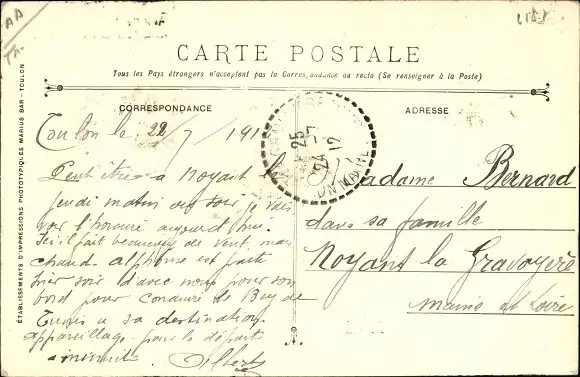 CARTE POSTALE
Tous les Pays étrangers n'acceptent pas la Correspondance au recto (Se renseigner à la Poste)
CORRESPONDANCE
ADRESSE
Toulon le 22/7/191
Peut être a Noyant le
jeudi matin ou soir je vais
voir l'horaire aujourd'hui.
Ici il fait beaucoup de vent, mais
chaud Alphonse est parti
hier soir d'avec nous pour son
bord pour conduire le Bey de
Tunis a sa destination.
appareillage pour le départ
a minuit. Albert
Madame Bernard
dans sa famille
Noyant la Gravoyère
Maine et Loire
25 -7
24 12
ÉTABLISSEMENTS D'IMPRESSIONS PHOTOTYPIQUES MARIUS BAR - TOULON